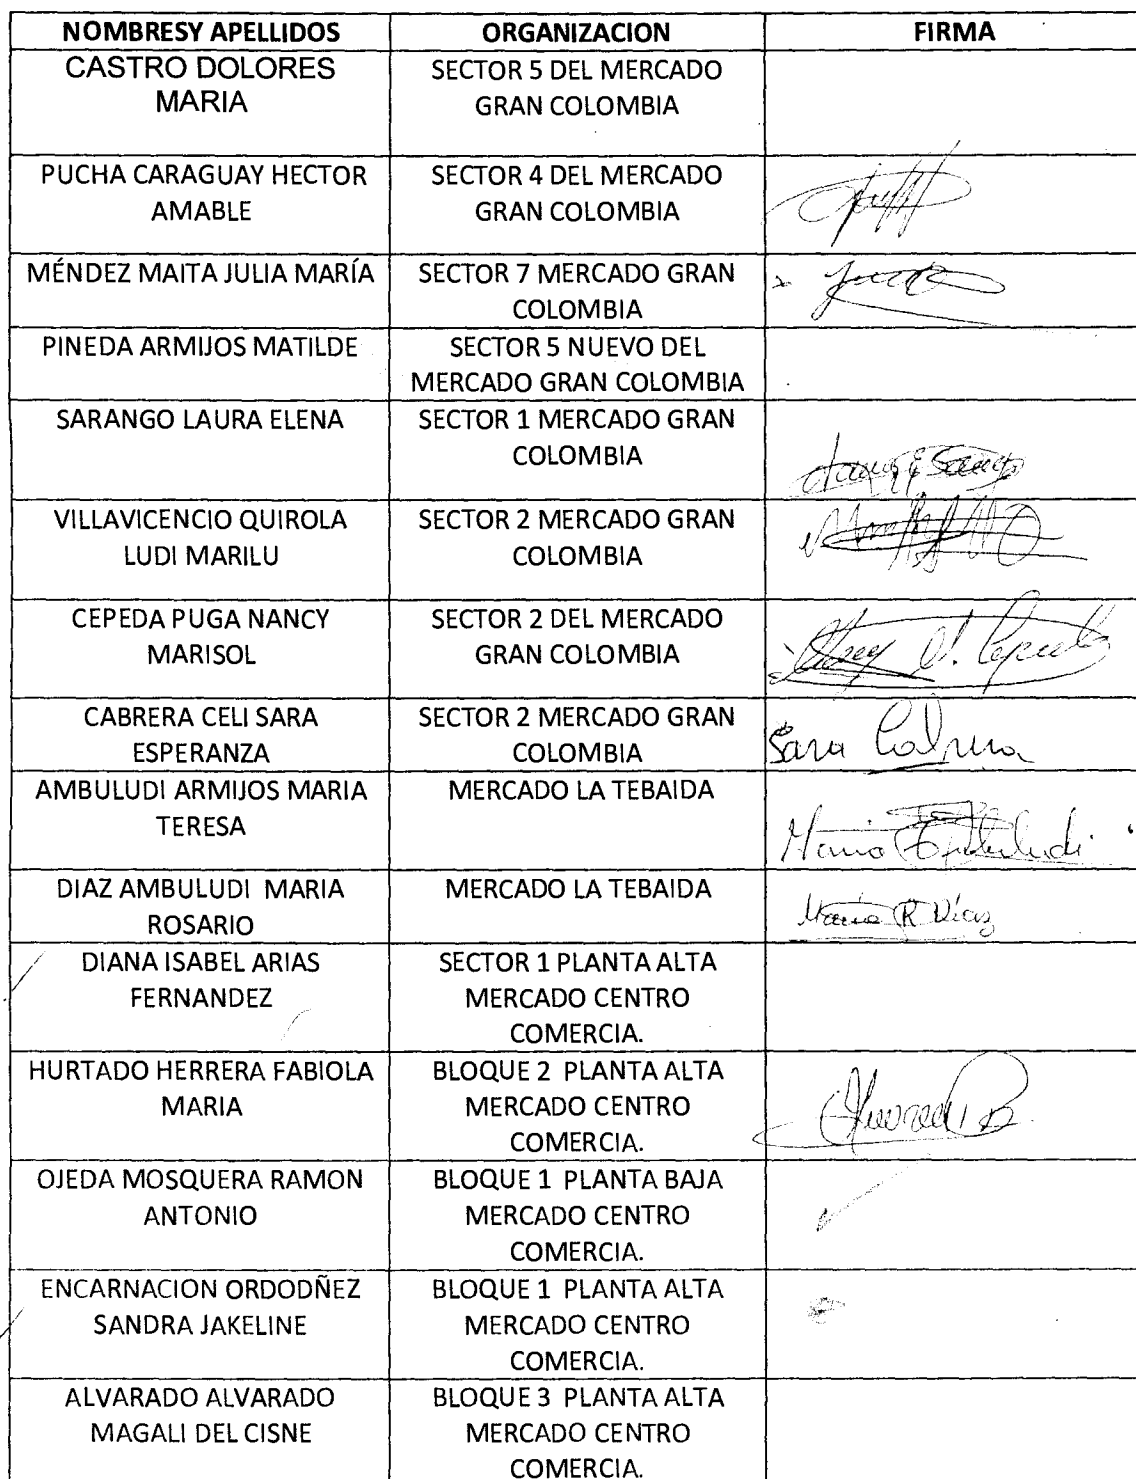 NOMBRESY APELLIDOS ORGANIZACION FIRMA
CASTRO DOLORES
MARIA
SECTOR 5 DEL MERCADO
GRAN COLOMBIA
PUCHA CARAGUAY HECTOR
AMABLE
SECTOR 4 DEL MERCADO
GRAN COLOMBIA
MÉNDEZ MAITA JULIA MARÍA
SECTOR 7 MERCADO GRAN
COLOMBIA
PINEDA ARMIJOS MATILDE
SECTOR 5 NUEVO DEL
MERCADO GRAN COLOMBIA
SARANGO LAURA ELENA
SECTOR 1 MERCADO GRAN
COLOMBIA
VILLAVICENCIO QUIROLA
LUDI MARILU
SECTOR 2 MERCADO GRAN
COLOMBIA
CEPEDA PUGA NANCY
MARISOL
SECTOR 2 DEL MERCADO
GRAN COLOMBIA
CABRERA CELI SARA
ESPERANZA
SECTOR 2 MERCADO GRAN
COLOMBIA
Sara Cabrera
AMBULUDI ARMIJOS MARIA
TERESA
MERCADO LA TEBAIDA
Maria Ambuludi
DIAZ AMBULUDI MARIA
ROSARIO
MERCADO LA TEBAIDA
Maria R Diaz
DIANA ISABEL ARIAS
FERNANDEZ
SECTOR 1 PLANTA ALTA
MERCADO CENTRO
COMERCIA.
HURTADO HERRERA FABIOLA
MARIA
BLOQUE 2 PLANTA ALTA
MERCADO CENTRO
COMERCIA.
OJEDA MOSQUERA RAMON
ANTONIO
BLOQUE 1 PLANTA BAJA
MERCADO CENTRO
COMERCIA.
ENCARNACION ORDODÑEZ
SANDRA JAKELINE
BLOQUE 1 PLANTA ALTA
MERCADO CENTRO
COMERCIA.
ALVARADO ALVARADO
MAGALI DEL CISNE
BLOQUE 3 PLANTA ALTA
MERCADO CENTRO
COMERCIA.